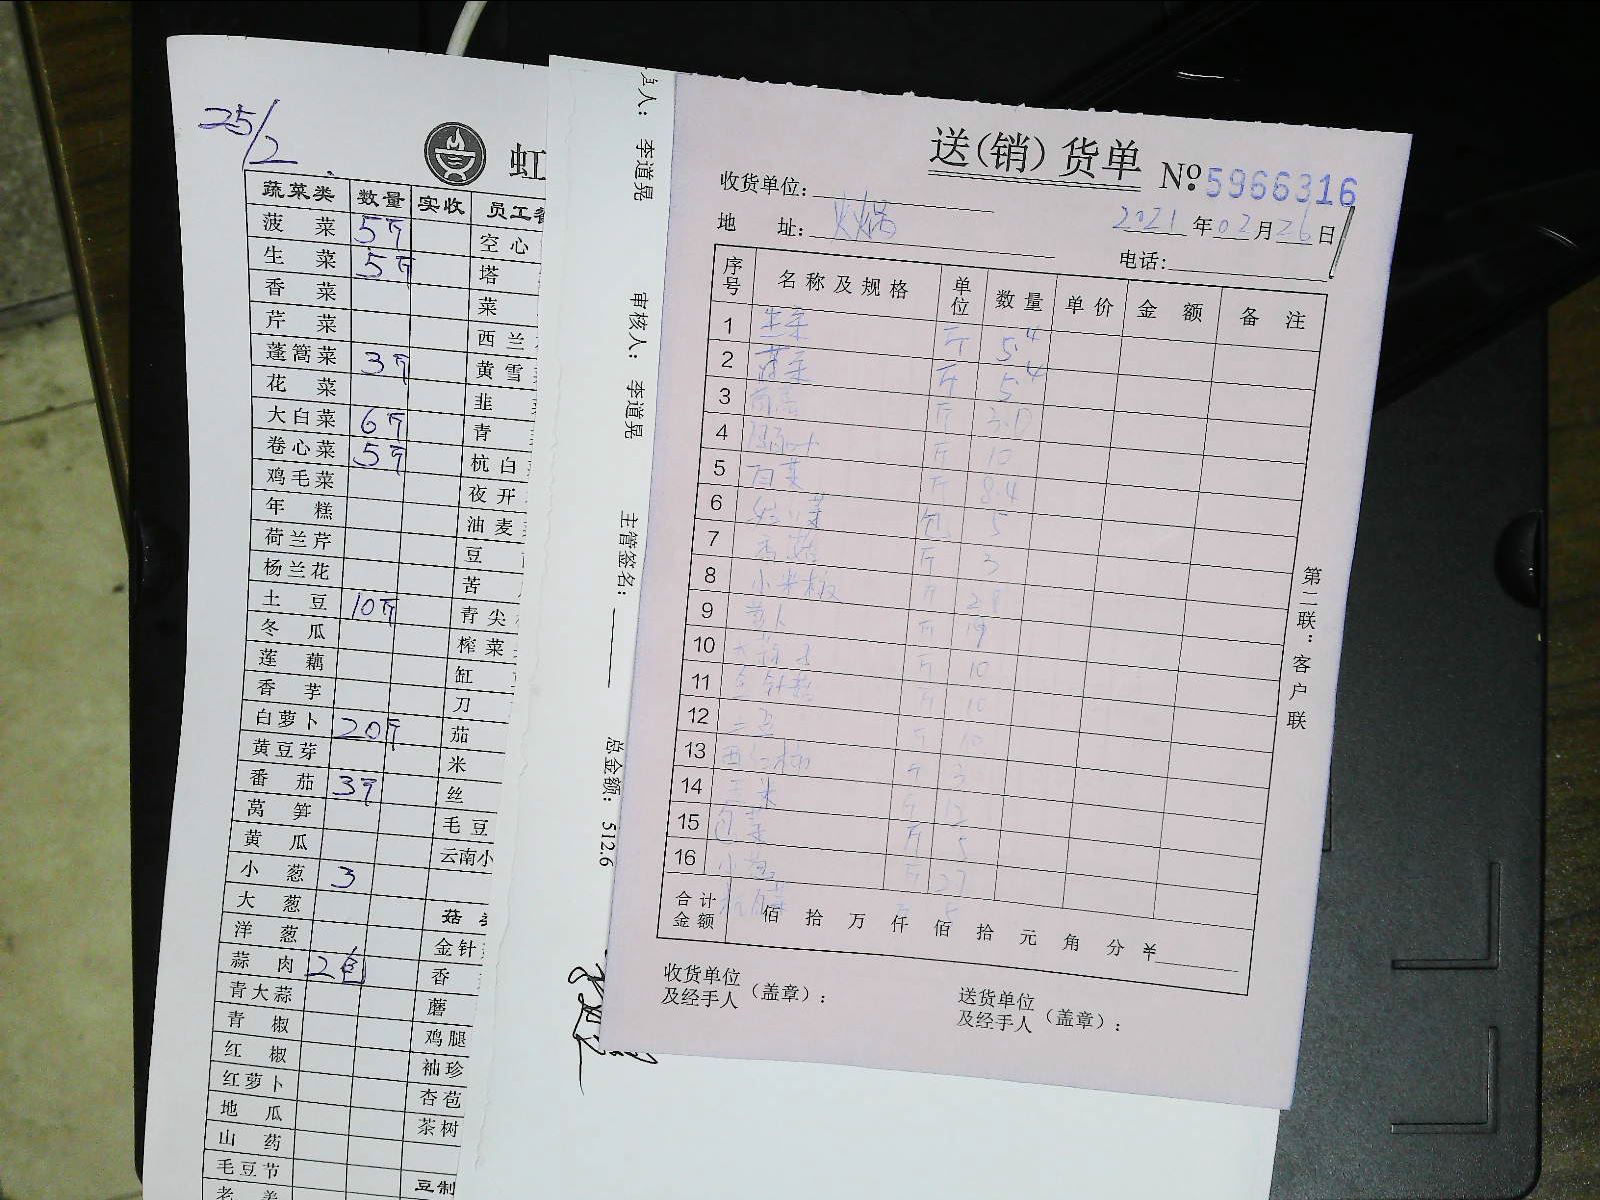 25/2
虹
蔬菜类 数量 实收 员工
菠菜 5斤 空心
生菜 5斤 塔
香菜 菜
芹菜 西兰
蓬蒿菜 3斤 黄雪
花菜 韭
大白菜 6斤 青
卷心菜 5斤 杭白
鸡毛菜 夜开
年糕 油麦
荷兰芹 豆
杨兰花 苦
土豆 10斤 青尖
冬瓜 榨菜
莲藕 缸
香芋 刀
白萝卜 20斤 茄
黄豆芽 米
番茄 3斤 丝
莴笋 毛豆
黄瓜 云南小
小葱 3
大葱 菇
洋葱 金针
蒜肉 2包 香
青大蒜 蘑
青椒 鸡腿
红椒 袖珍
红萝卜 杏苞
地瓜 茶树
山药
毛豆节 豆制
老姜
人: 李道晃
审核人: 李道晃
主管签名:
总金额: 512.6
送(销)货单 No 5966316
收货单位:
地址: 火锅
2021年02月26日
电话:
序号 名称及规格 单位 数量 单价 金额 备注
1 生菜 斤 5.4
2 菠菜 斤 5.4
3 斤
4 斤 10
5 白菜 斤 8.4
6 包 5
7 香菇 斤 3
8 小米椒 斤
9 萝卜 斤 19
10 斤 10
11 金针菇 斤 10
12 土豆 斤 10
13 西红柿 斤 3
14 玉米 斤 12
15 包菜 斤 5
16 小葱 斤
合计金额 佰拾万仟佰拾元角分 ¥
收货单位及经手人(盖章):
送货单位及经手人(盖章):
第二联:客户联